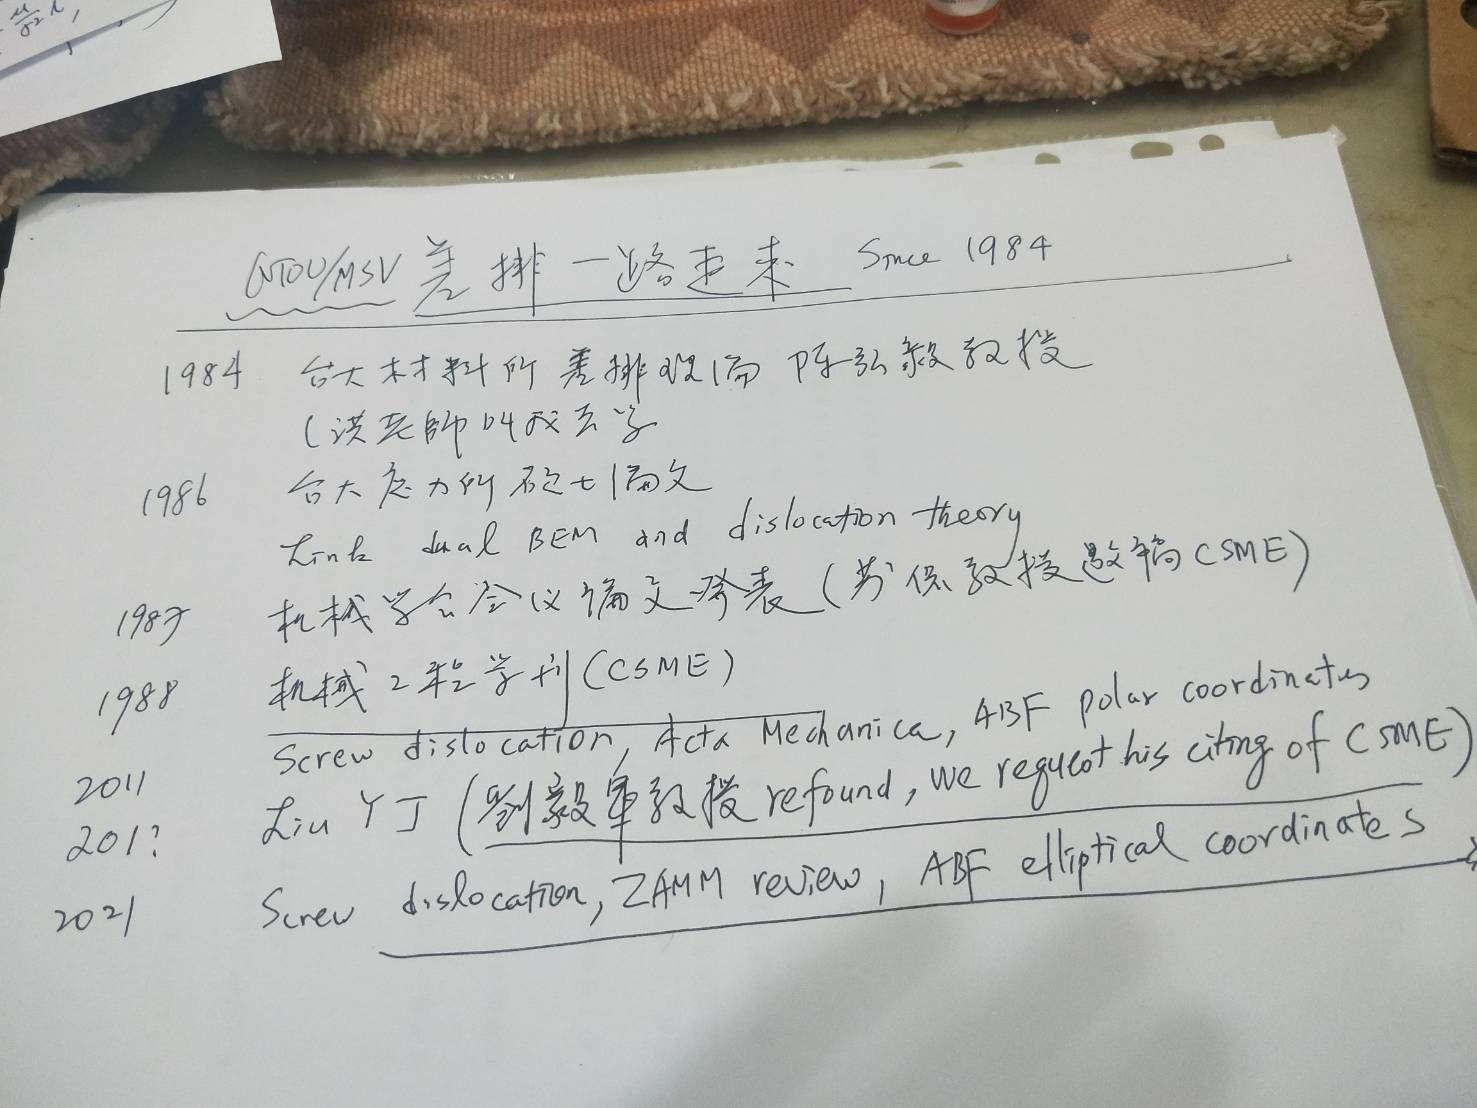 NTOU/MSV 差排一路走来 Since 1984
1984 台大材料所 差排理论 陈弘毅教授
(洪老師叫我去学
1986 台大应力所硕士论文
Link dual BEM and dislocation theory
1987 机械学会会议论文发表 (劳保教授邀稿 CSME)
1988 机械工程学刊 (CSME)
2011 Screw dislocation, Acta Mechanica, ABF polar coordinates
201? Liu YJ (劉毅軍教授 refound, we request his citing of CSME)
2021 Screw dislocation, ZAMM review, ABF elliptical coordinates